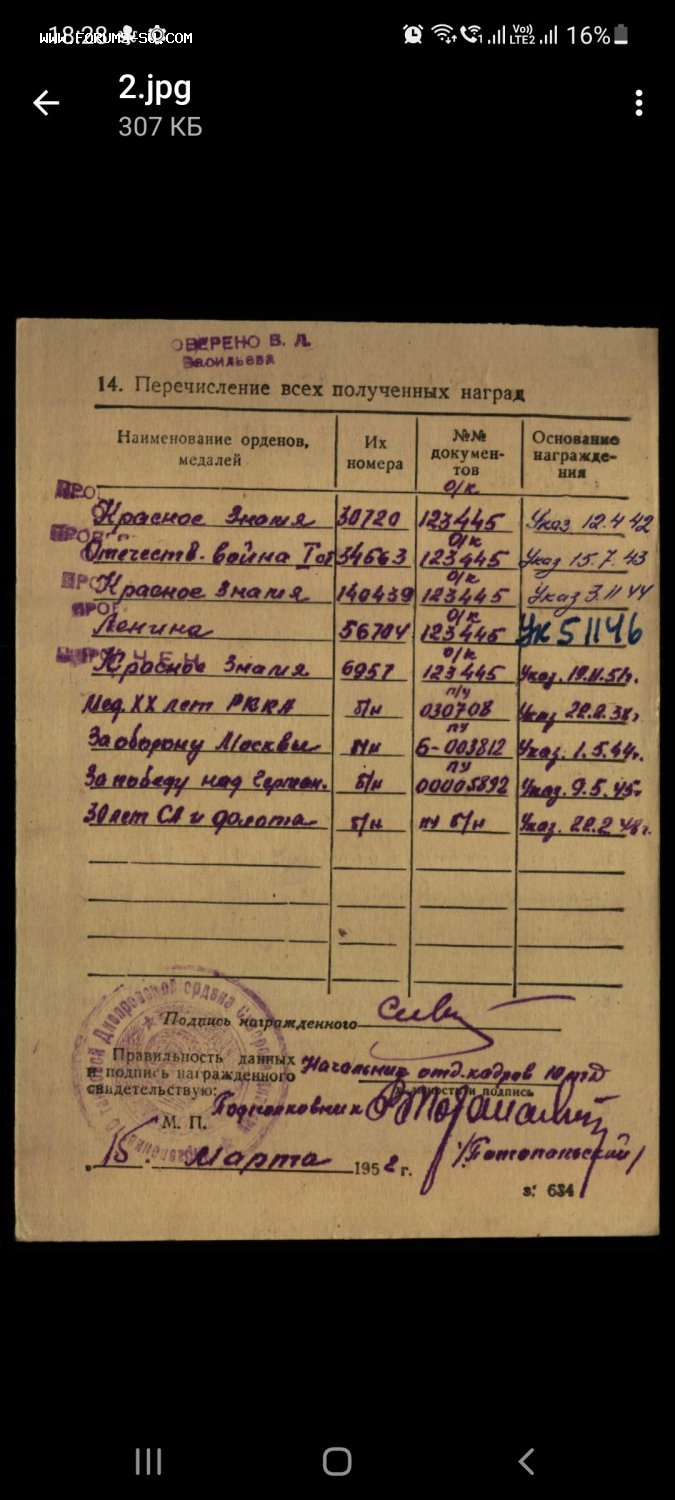 18:28
www.forums-su.com
Vo)) LTE2 16%
2.jpg
307 КБ
ОВЕРЕНО В. Л.
Васильева
14. Перечисление всех полученных наград
Наименование орденов, медалей
Их номера
№№ докумен-тов
Основание награжде-ния
ПРО
о/к
Красное Знамя 30720 123445 Указ 12.4 42
ПРОВ
о/к
Отечеств. война I ст 34663 123445 Указ 15.7.43
ПРО
о/к
Красное Знамя 140439 123445 Указ 3.11 44
ПРОВ
о/к
Ленина 56704 123445 Ук 5 11 46
о/к
Красное Знамя 6957 123445 Указ.
п/у
Мед. ХХ лет РККА б/н 030708 Указ 22.2.38г.
пу
За оборону Москвы б/н б-003812 Указ. 1.5.44г.
пу
За победу над Герман. б/н 00005892 Указ. 9.5.45г
30 лет СА и флота б/н пу б/н Указ. 22.2 48г.
Подпись награжденного
Правильность данных
и подпись награжденного Начальник отд. кадров 10
свидетельствую: должность и подпись
Подполковник
М. П.
/Потопаньский/
15 марта 1952 г.
з. 634